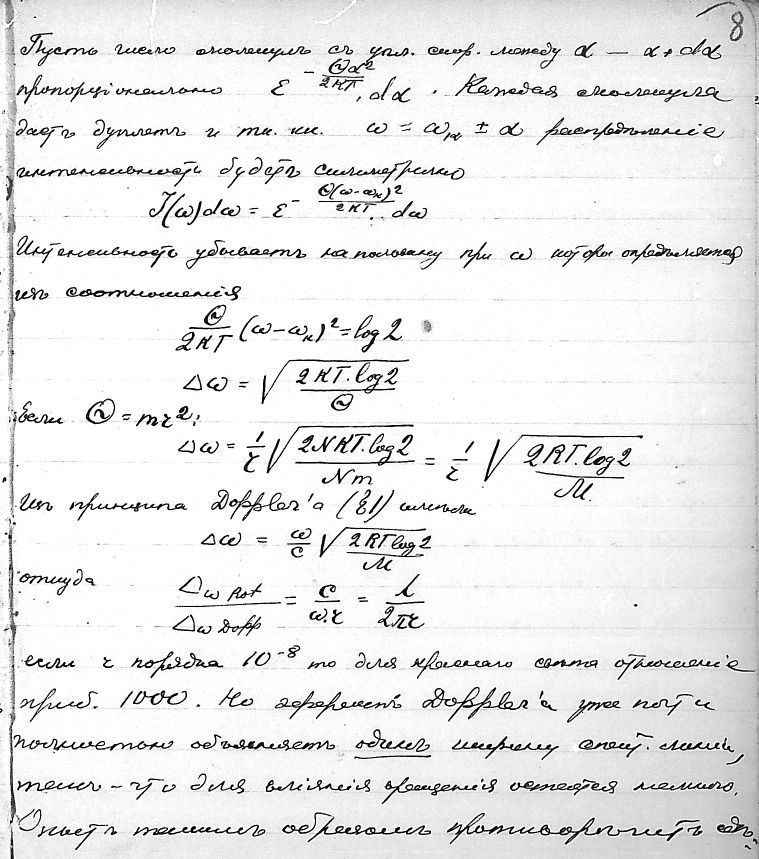 8
Пусть число молекулъ съ угл. скор. между α — α + dα
пропорціонально ε^{-Θα²/2KT}. dα. Каждая молекула
дастъ дуплетъ и т. к. ω = ωₖ ± α распредѣленіе
интенсивности будетъ симметрично
J(ω)dω = ε^{-Θ(ω-ωₖ)²/2KT}. dω
Интенсивность убываетъ на половину при ω которы опредѣляется
изъ соотношенія
Θ/2KT (ω-ωₖ)² = log 2
Δω = √(2KT.log2/Θ)
Если Θ = mr²:
Δω = 1/r √(2NKT.log2/Nm) = 1/r √(2RT.log2/M)
Изъ принципа Doppler'a (§1) имѣемъ
Δω = ω/c √(2RTlog2/M)
откуда
Δω Rot/Δω Dopp = c/ω.r = λ/2πr
если r порядка 10⁻⁸ то для краснаго свѣта отношеніе
приб. 1000. Но эффектъ Doppler'a уже почти
полностью объясняетъ одинъ ширину спект. линій,
такъ-что для вліянія вращенія остается немного.
Опытъ такимъ образомъ противорѣчитъ